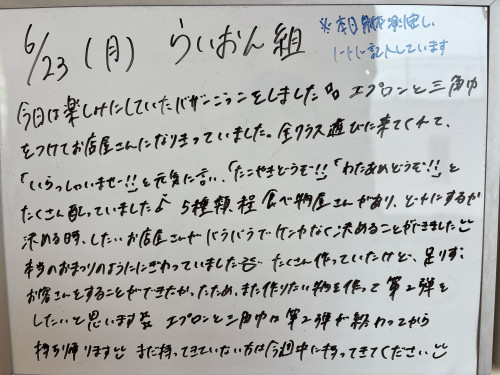 6/23（月） らいおん組
※本日 測定し、
ノートに記入しています
今日は楽しみにしていたバザーごっこをしました♪ エプロンと三角巾
をつけてお店屋さんになりきっていました。全クラス遊びに来てくれて、
「いらっしゃいませー!!」と元気に言い、「たこやきどうぞ!!」「わたあめどうぞ!!」と
たくさん配っていました♪ 5種類程食べ物屋さんがあり、どれにするか
決める時、したいお店屋さんがバラバラでケンカなく決めることができました
本当のおまつりのようににぎわっていました たくさん作っていたけど、足りず、
お客さんをすることができなかったため、また作りたい物を作って第2弾を
したいと思います エプロンと三角巾は第2弾が終わってから
持ち帰ります まだ持ってきていない方は今週中に持ってきてください